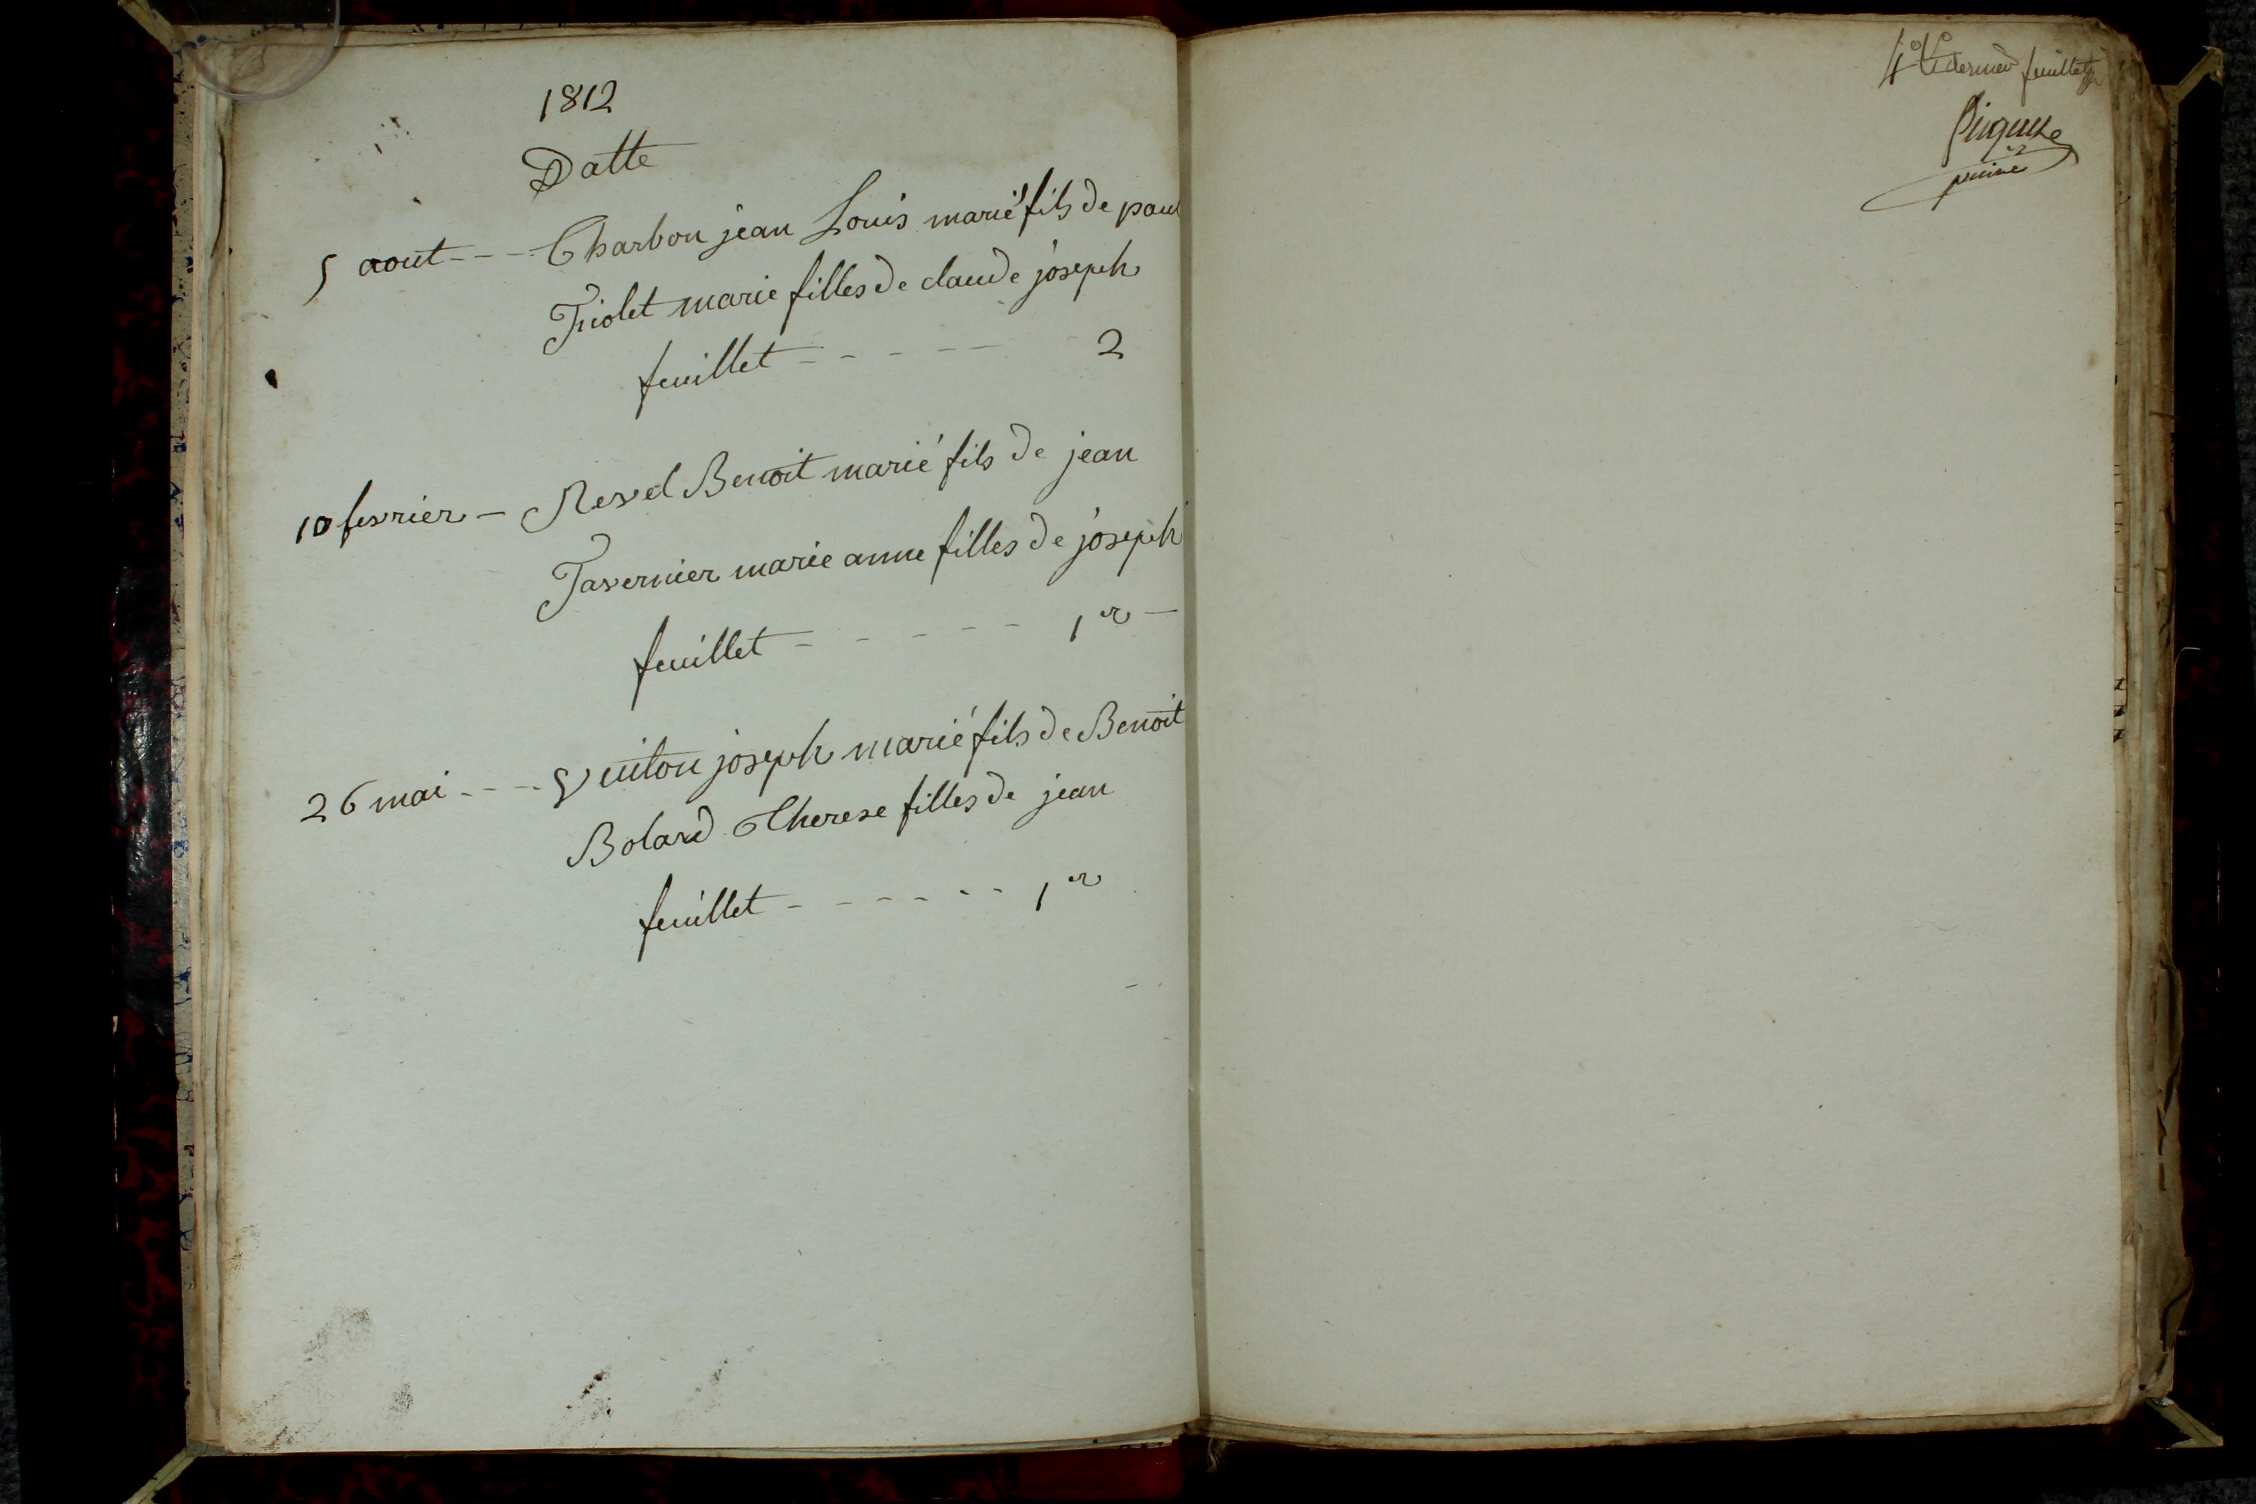 1812
Datte
5 aout --- Charbon jean Louis marié fils de paul
Triolet marie filles de claude joseph
feuillet ----- 2
10 fevrier - Revel Benoit marié fils de jean
Tavernier marie anne filles de joseph
feuillet ----- 1er -
26 mai --- Vuiton joseph marié fils de Benoit
Bolard Therese filles de jean
feuillet ------ 1er
4e & dernier feuillet